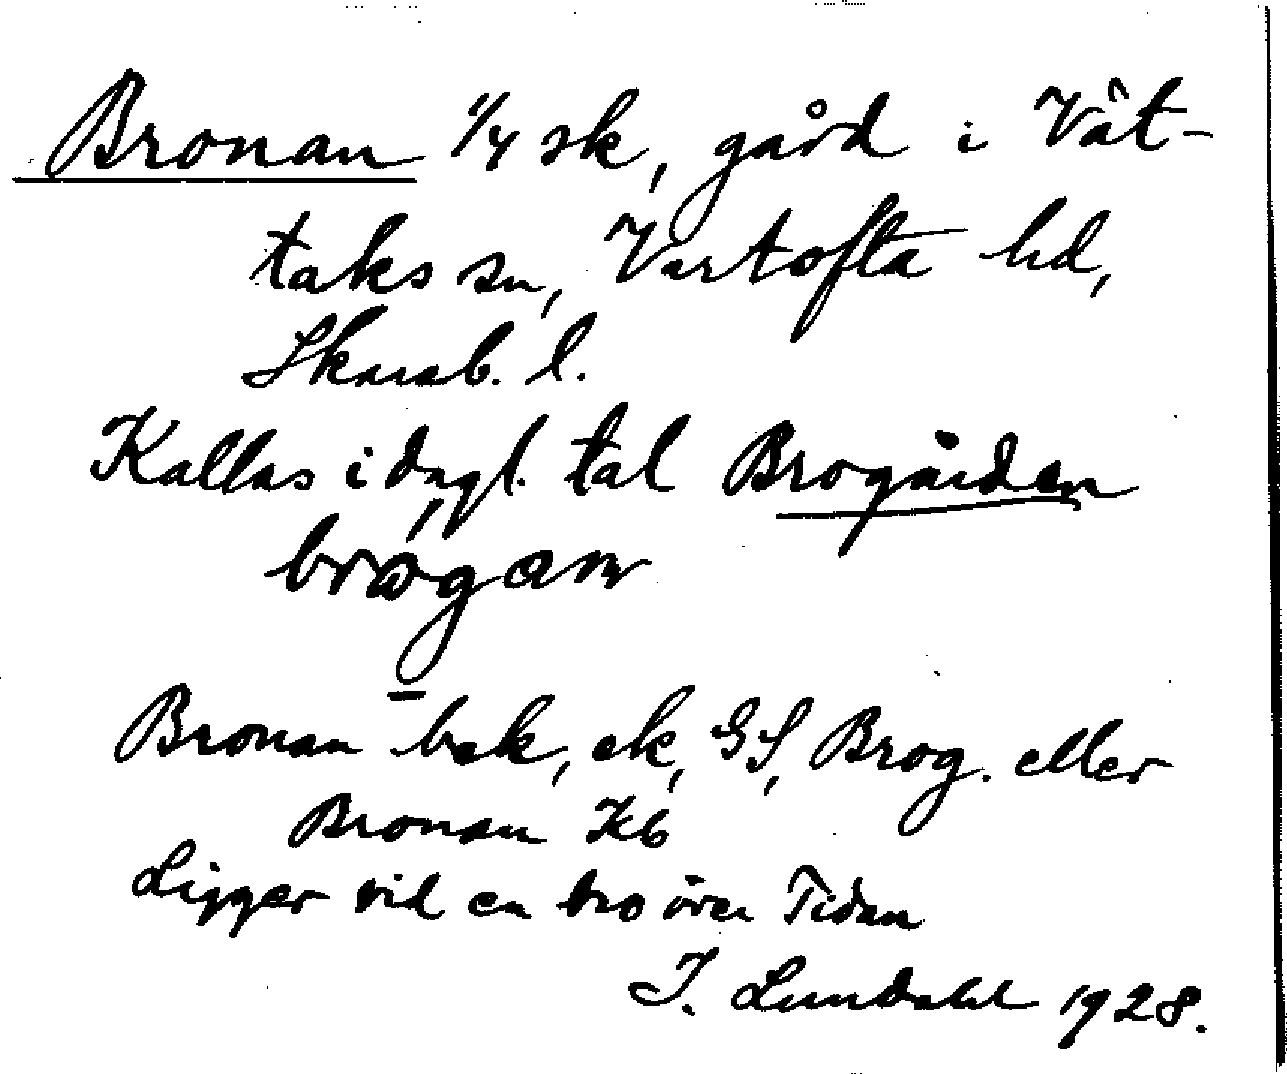 Bronan 1/4 sk, gård i Vät-
taks sn, Vartofta hd,
Skarab. l.
Kallas i dagl. tal Brogården
brogan
Bronan bek, ek, GS, Brog. eller
Bronan Kb
Ligger vid en bro över Tidan
I. Lundahl 1928.